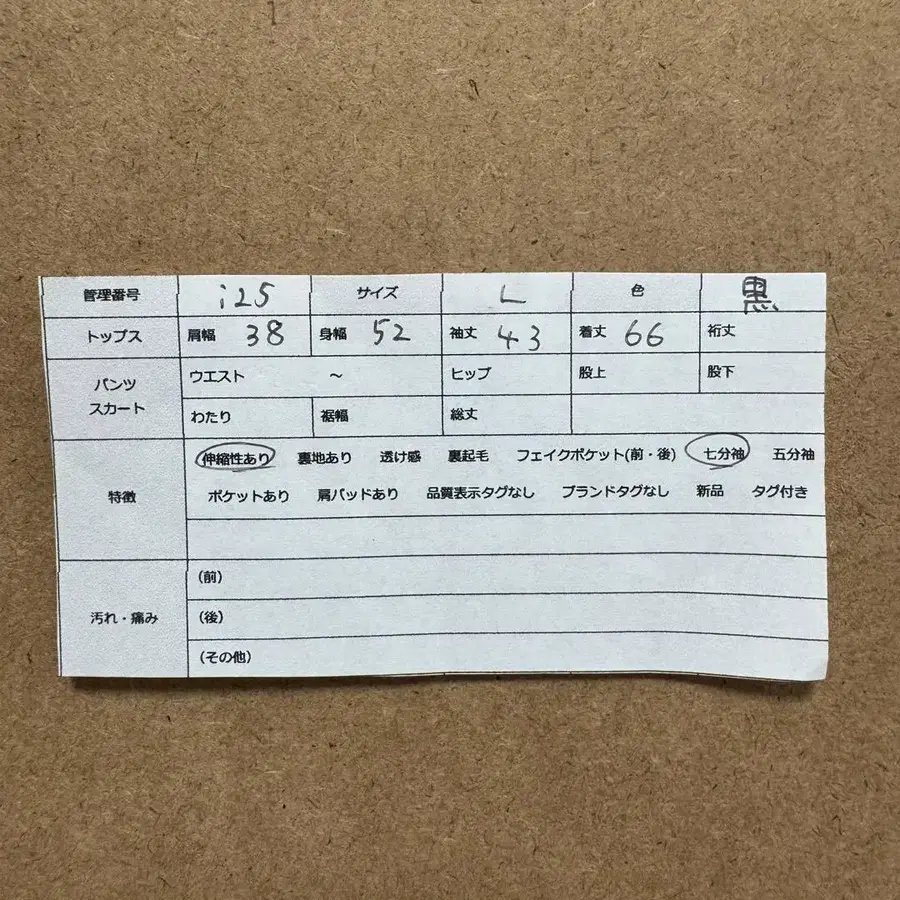 管理番号 i25 サイズ L 色 黒
トップス 肩幅 38 身幅 52 袖丈 43 着丈 66 裄丈
パンツ スカート ウエスト ～ ヒップ 股上 股下
わたり 裾幅 総丈
特徴 伸縮性あり 裏地あり 透け感 裏起毛 フェイクポケット(前・後) 七分袖 五分袖
ポケットあり 肩パッドあり 品質表示タグなし ブランドタグなし 新品 タグ付き
汚れ・痛み (前)
(後)
(その他)